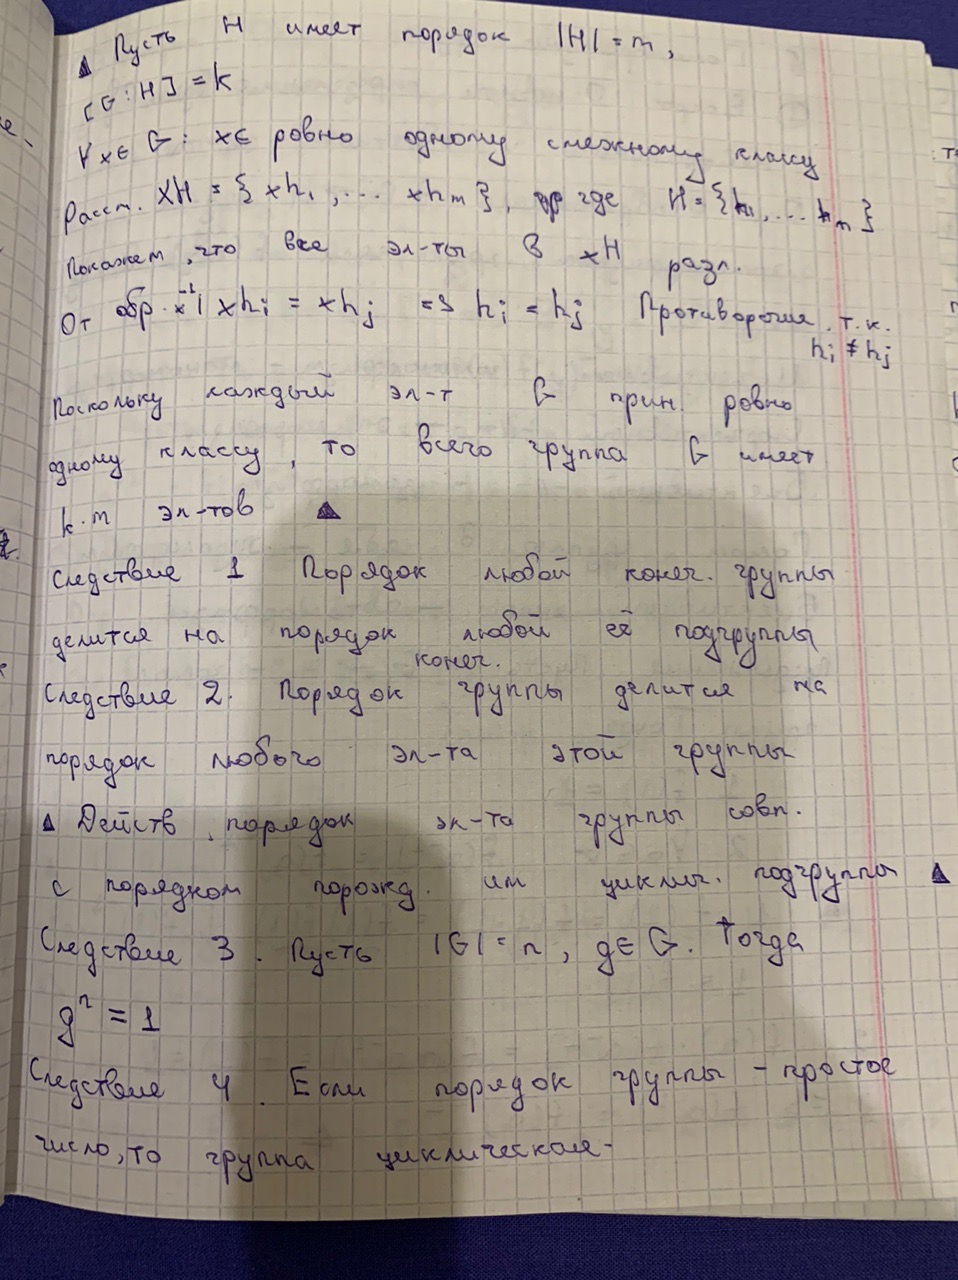 ▲ Пусть H имеет порядок |H| = m,
[G:H] = k
∀x∈ G: x∈ ровно одному смежному классу
Расст. xH = {xh₁, ... xhₘ}, где H = {h₁, ... hₘ}
Покажем, что все эл-ты в xH разл.
От обр. x⁻¹| xhᵢ = xhⱼ => hᵢ = hⱼ Противоречие, т.к.
hᵢ ≠ hⱼ
Поскольку каждый эл-т G прин. ровно
одному классу, то всего группа G имеет
k·m эл-тов ▲
Следствие 1 Порядок любой конеч. группы
делится на порядок любой её подгруппы
конеч.
Следствие 2. Порядок группы делится на
порядок любого эл-та этой группы
▲ Действ, порядок эл-та группы совп.
с порядком порожд. им циклич. подгруппы ▲
Следствие 3. Пусть |G| = n, g∈G. Тогда
gⁿ = 1
Следствие 4. Если порядок группы - простое
число, то группа циклическая.